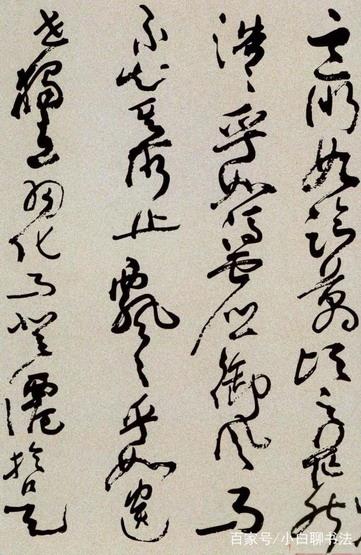 之所如陵萬頃之茫然
浩〻乎如馮虛御風而
不知其所止飄〻乎如遺
世獨立羽化而登僊於是
百家号/小白聊书法